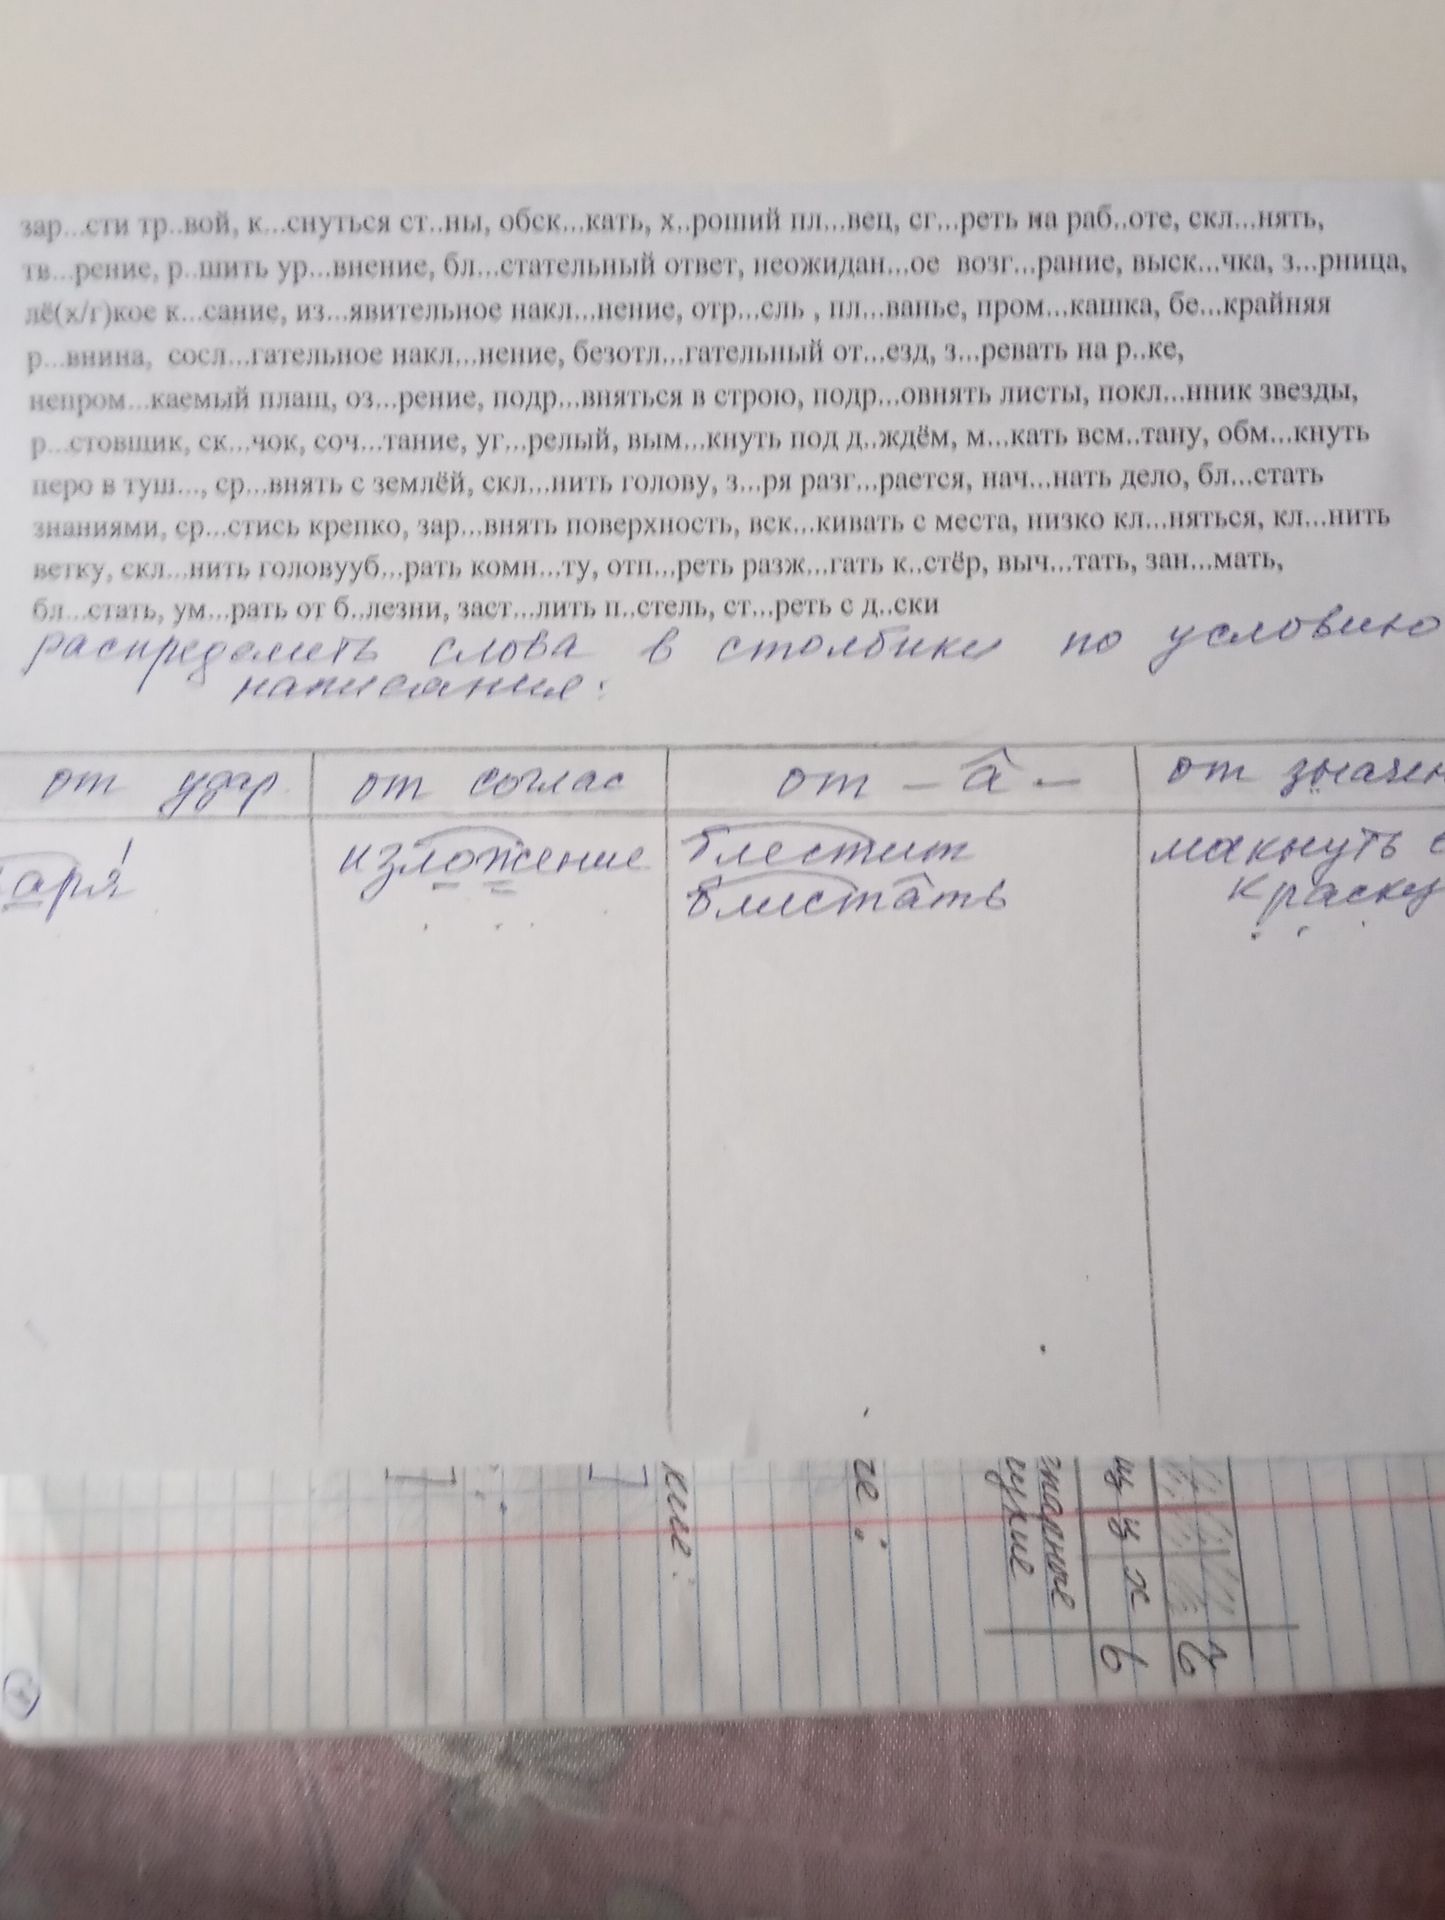 зар...сти тр..вой, к...снуться ст..ны, обск...кать, х..роший пл...вец, сг...реть на раб..оте, скл...нять,
тв...рение, р..шить ур...внение, бл...стательный ответ, неожидан...ое возг...рание, выск...чка, з...рница,
лё(х/г)кое к...сание, из...явительное накл...нение, отр...сль , пл...ванье, пром...кашка, бе...крайняя
р...внина, сосл...гательное накл...нение, безотл...гательный от...езд, з...ревать на р..ке,
непром...каемый плащ, оз...рение, подр...вняться в строю, подр...овнять листы, покл...нник звезды,
р...стовщик, ск...чок, соч...тание, уг...релый, вым...кнуть под д..ждём, м...кать всм..тану, обм...кнуть
перо в туш..., ср...внять с землёй, скл...нить голову, з...ря разг...рается, нач...нать дело, бл...стать
знаниями, ср...стись крепко, зар...внять поверхность, вск...кивать с места, низко кл...няться, кл...нить
ветку, скл...нить головууб...рать комн...ту, отп...реть разж...гать к..стёр, выч...тать, зан...мать,
бл...стать, ум...рать от б..лезни, заст...лить п..стель, ст...реть с д..ски
распределить слова в столбики по условию
написания:
от удар от соглас от – а – от значен
заря изложение блестит макнуть в
блистать краску
кие:
че:
парные
ц ч х
6